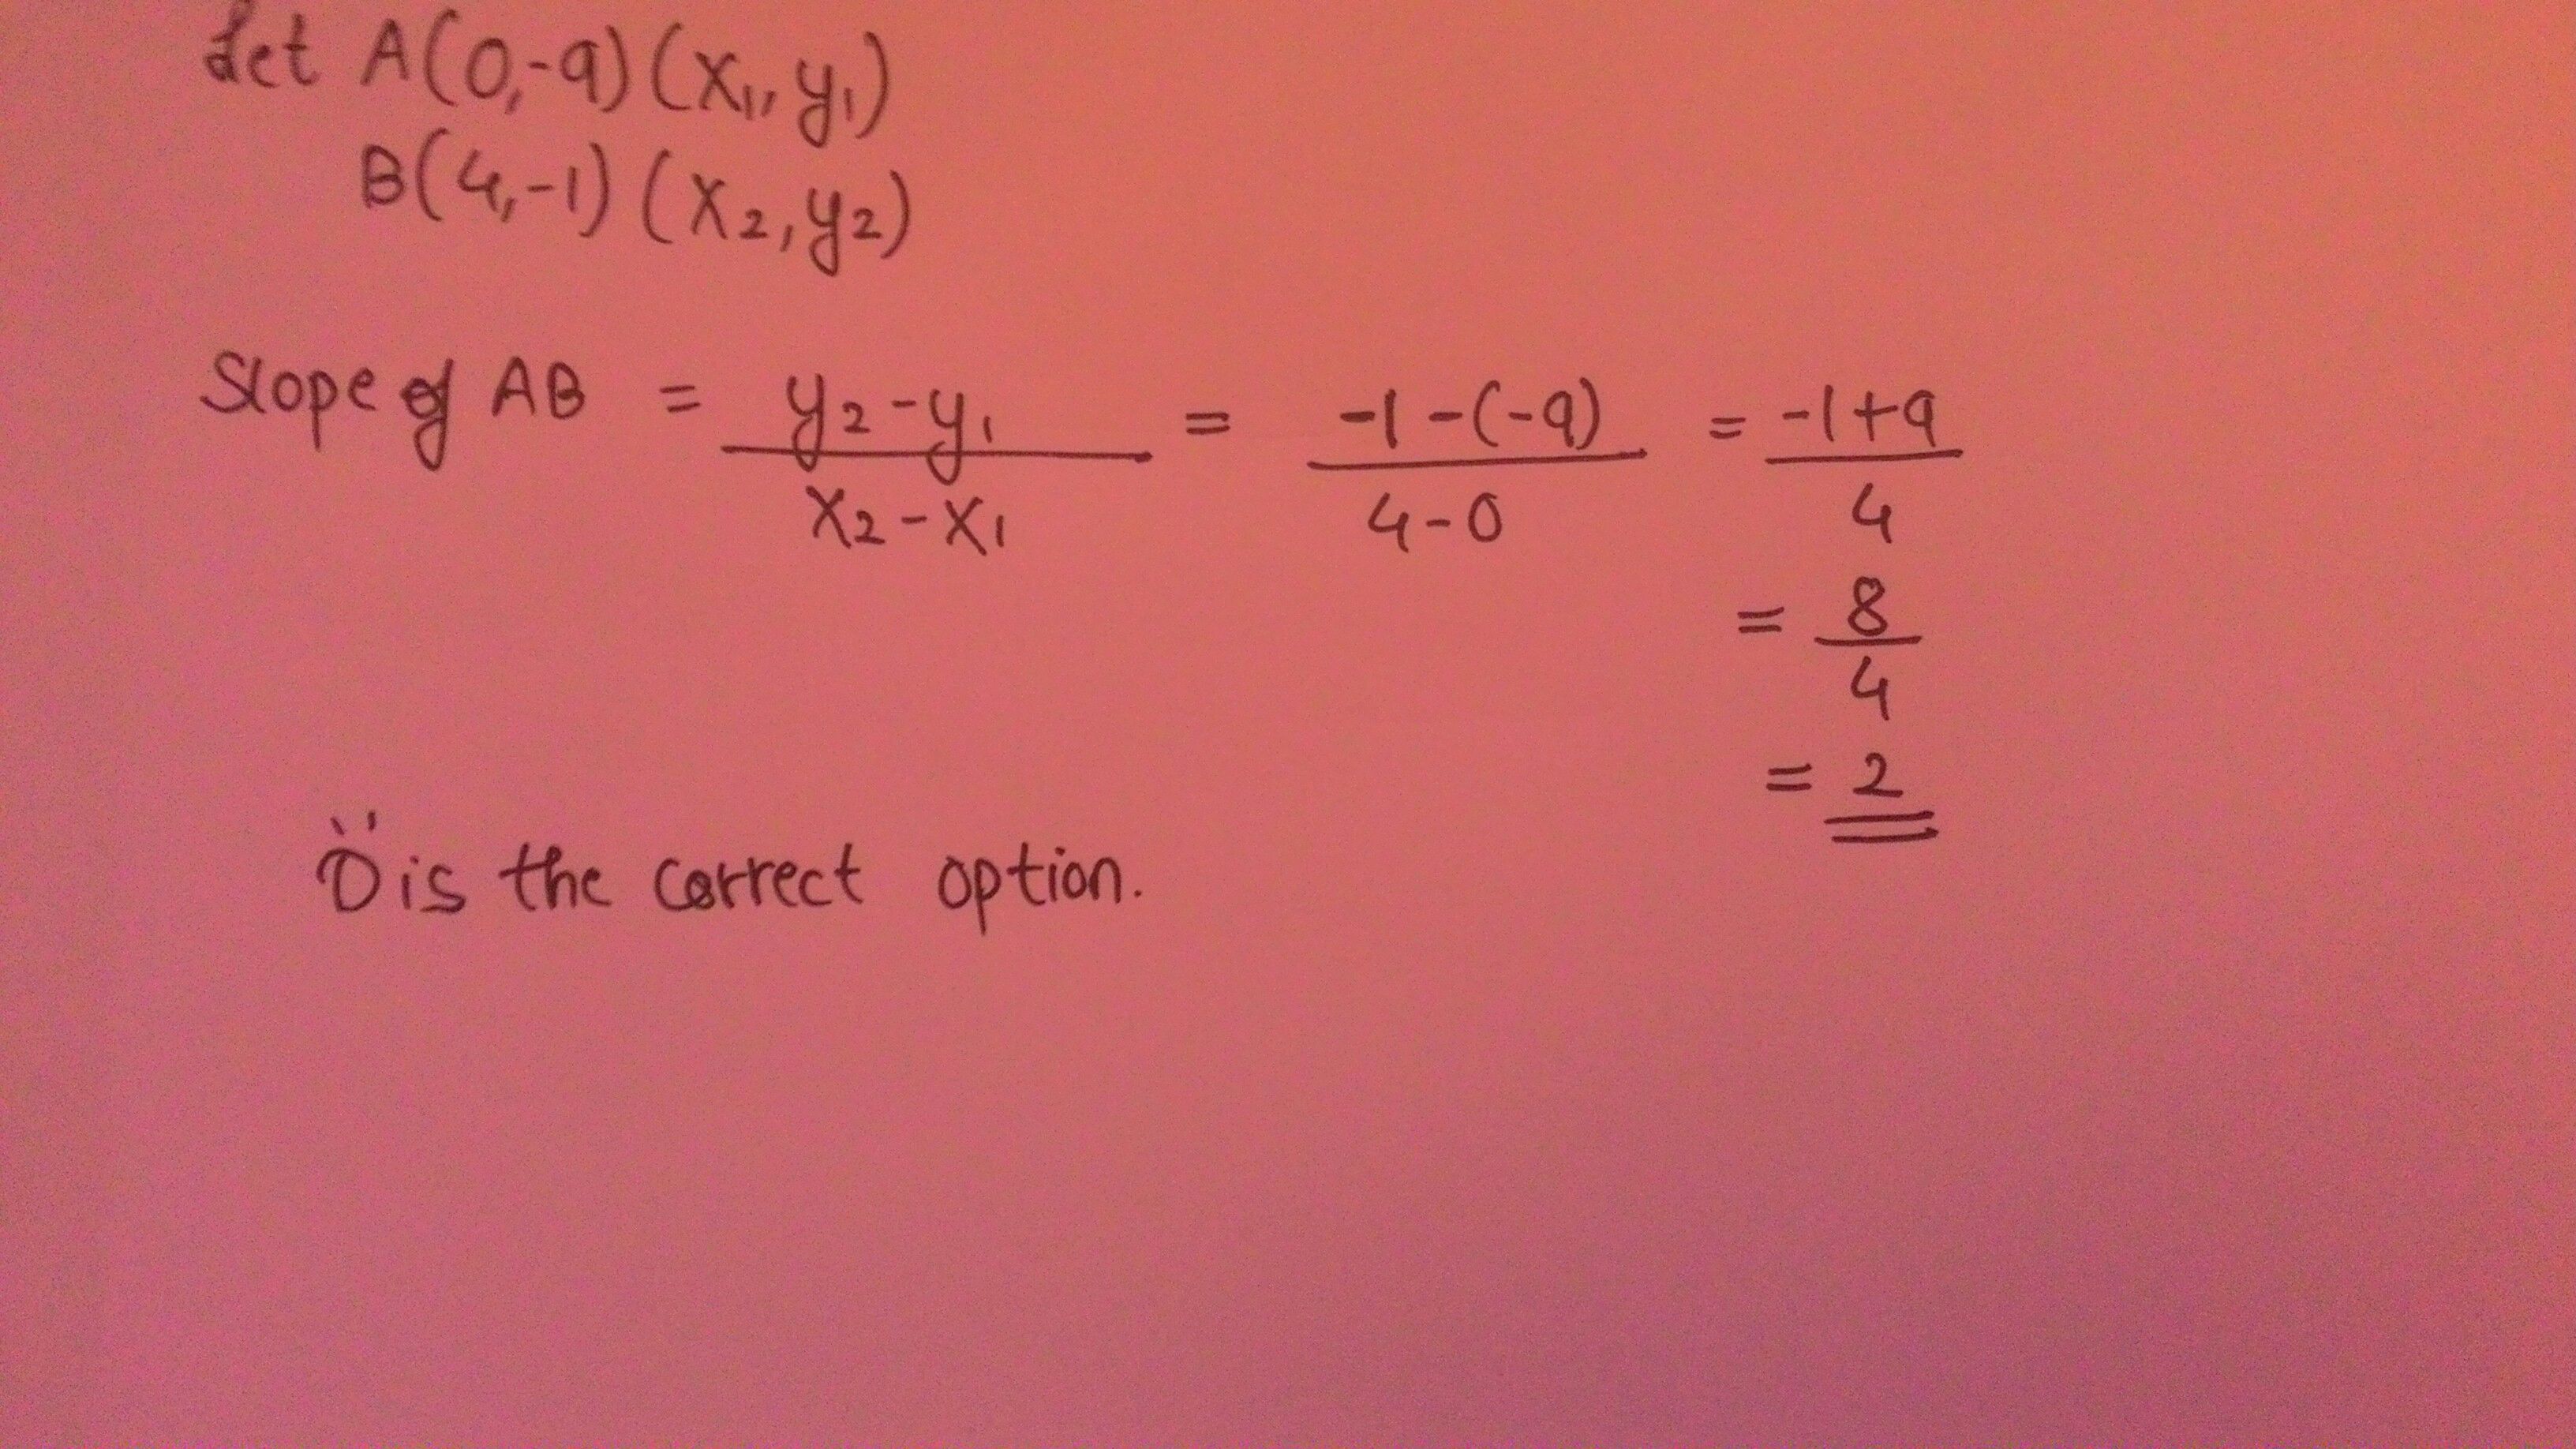 Let A(0,-9) (x₁, y₁)
B(4,-1) (x₂, y₂)
Slope of AB = y₂-y₁ / x₂-x₁ = -1-(-9) / 4-0 = -1+9 / 4
= 8 / 4
= 2
D is the correct option.